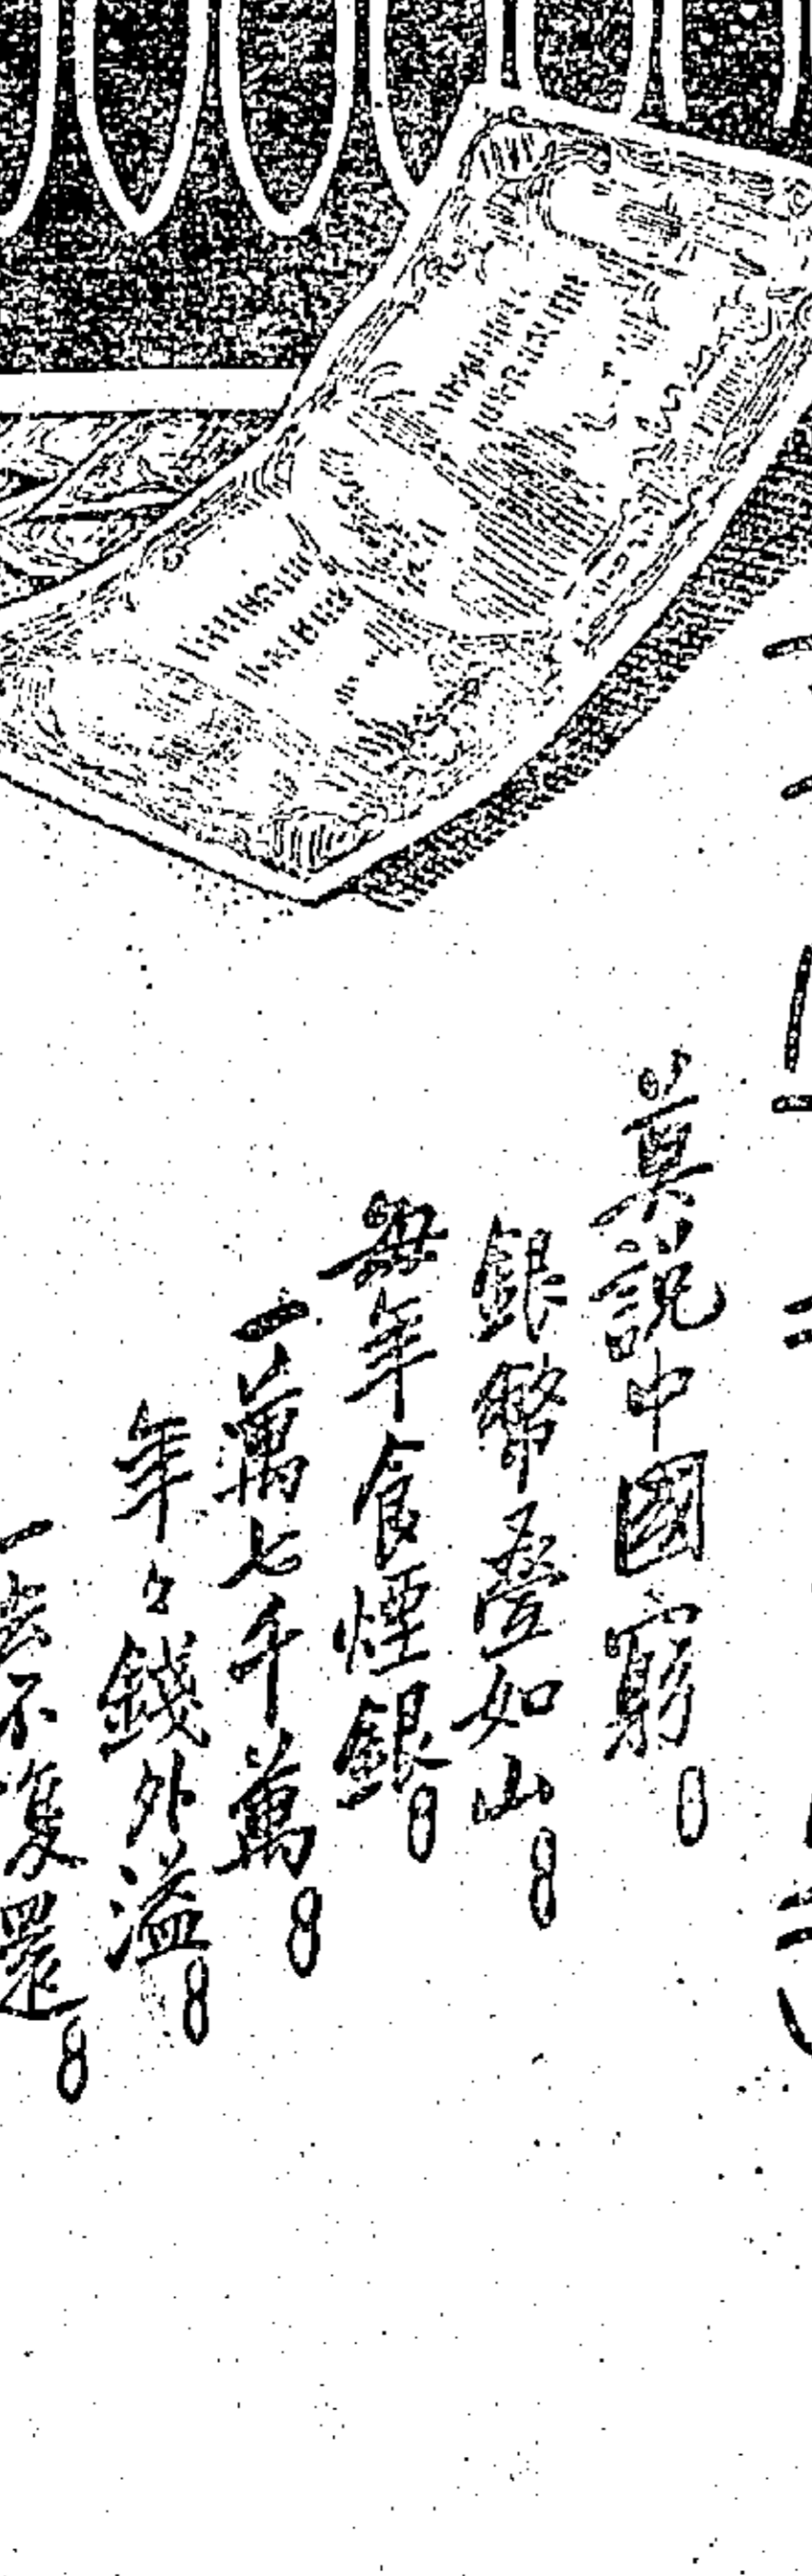 莫說中國窮
銀幣疊如山
每年食煙銀
一萬七千萬
年々錢外溢
一去不復還